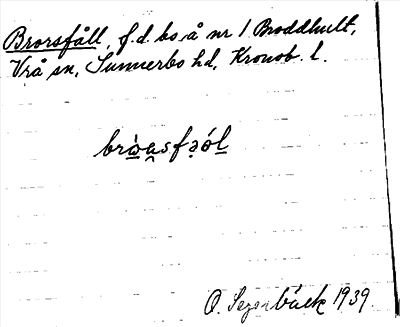 Brorsfåll, f.d. bs. å nr 1 Broddhult,
Vrå sn, Sunnerbo hd, Kronob. l.
O. Segerbäck 1939